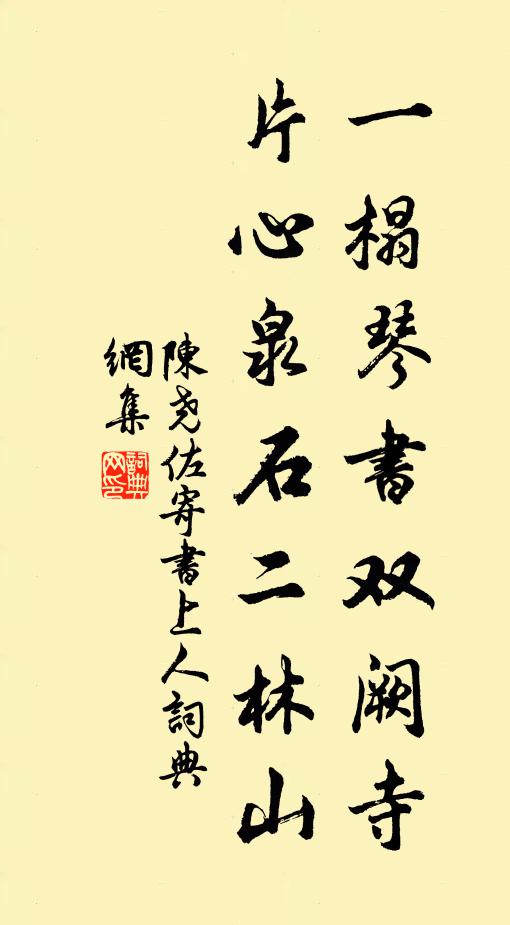 一榻琴書双阙寺
片心泉石二林山
陳尧佐寄書上人詞典
網集
詞典网印